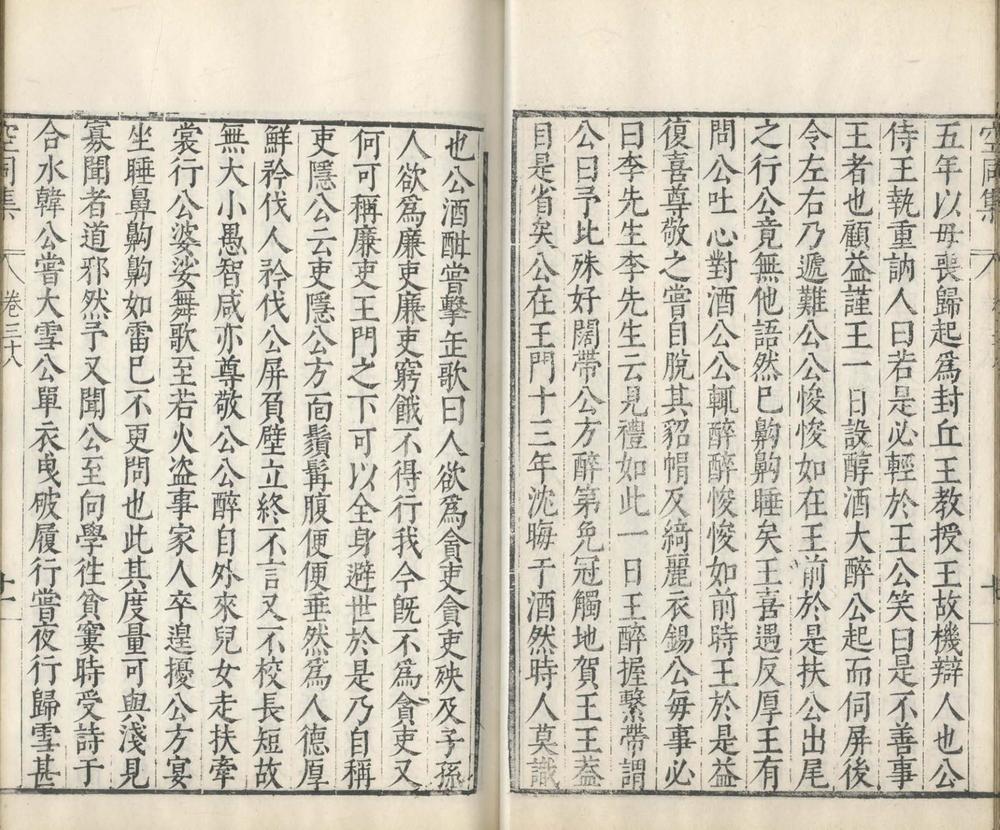 五年以母喪歸起爲封丘王教授王故機辯人也公
侍王執重訥人曰若是必輕於王公笑曰是不善事
王者也顧益謹王一日設醇酒大醉公起而伺屏後
令左右乃遞難公公悛悛如在王前於是扶公出尾
之行公竟無他語然已齁齁睡矣王喜遇反厚王有
問公吐心對酒公公輒醉醉悛悛如前時王於是益
復喜尊敬之嘗自脫其貂帽及綺麗衣錫公每事必
曰李先生李先生云見禮如此一日王醉握繫帶謂
公曰予比殊好闊帶公方醉第免冠觸地賀王王葢
自是省矣公在王門十三年沈晦于酒然時人莫識
也公酒酣嘗擊缶歌曰人欲爲貪吏貪吏殃及子孫
人欲爲廉吏廉吏窮餓不得行我今旣不爲貪吏又
何可稱廉吏王門之下可以全身避世於是乃自稱
吏隱公云吏隱公方面鬚髯腹便便垂然爲人德厚
鮮矜伐人矜伐公屏負壁立終不言又不校長短故
無大小愚智咸亦尊敬公公醉自外來兒女走扶牽
裳行公婆娑舞歌至若火盜事家人卒遑擾公方宴
坐睡鼻齁齁如雷已不更問也此其度量可與淺見
寡聞者道邪然予又聞公至向學徃貧窶時受詩于
合水韓公嘗大雪公單衣曳破履行嘗夜行歸雪甚
空同集
卷三十八
十一